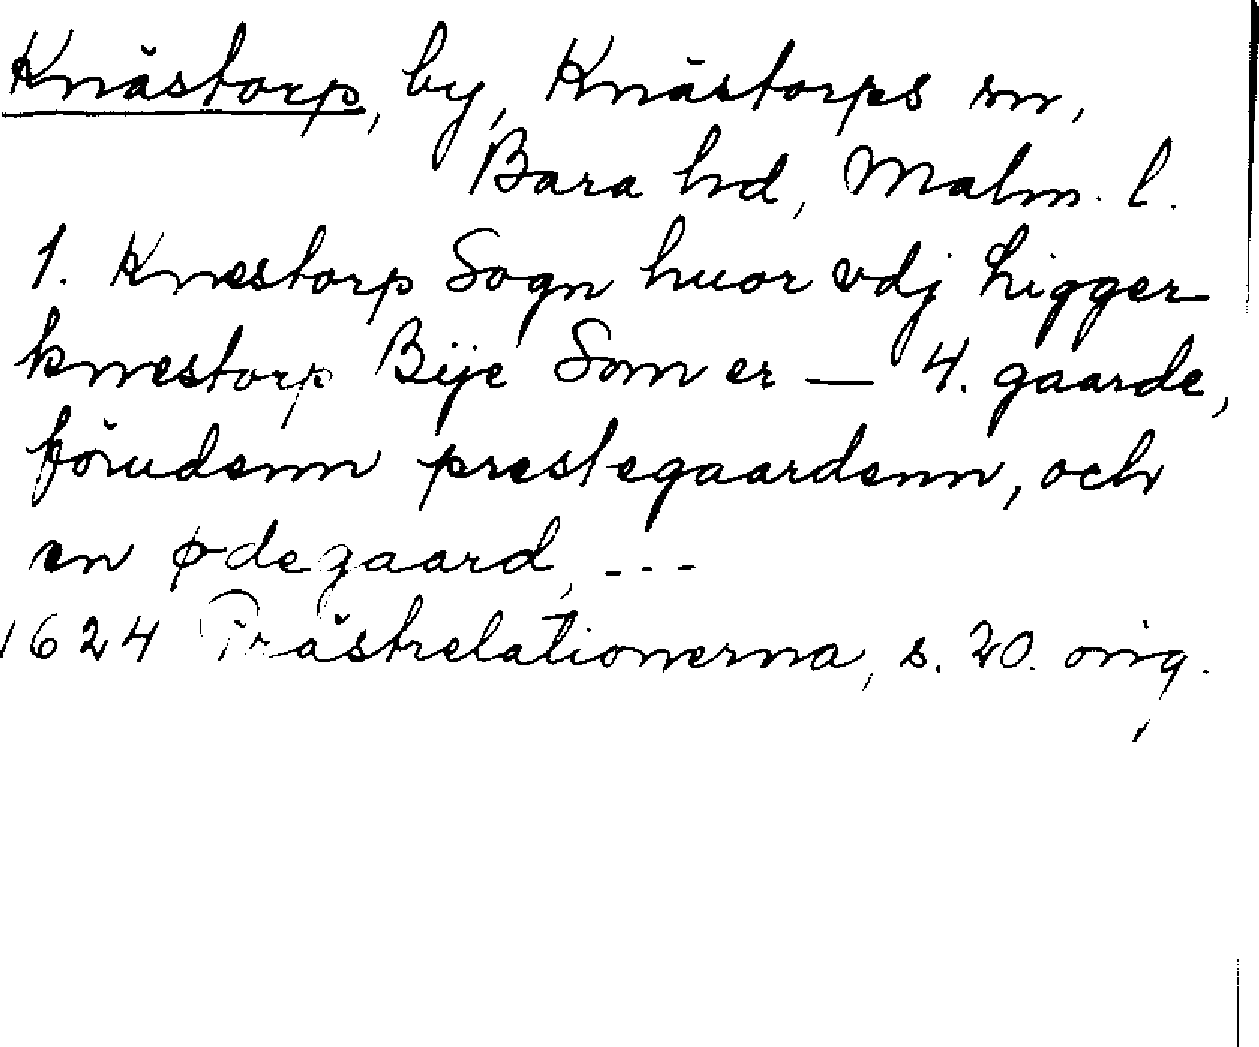 Knästorp, by, Knästorps sn,
Bara hd, Malm. l.
1. Knestorp Sogn huor vdj Ligger
knestorp Bije Som er — 4. gaarde,
förudenn prestegaardenn, och
en ødegaard, ---
1624 Prästrelationerna, s. 20. orig.